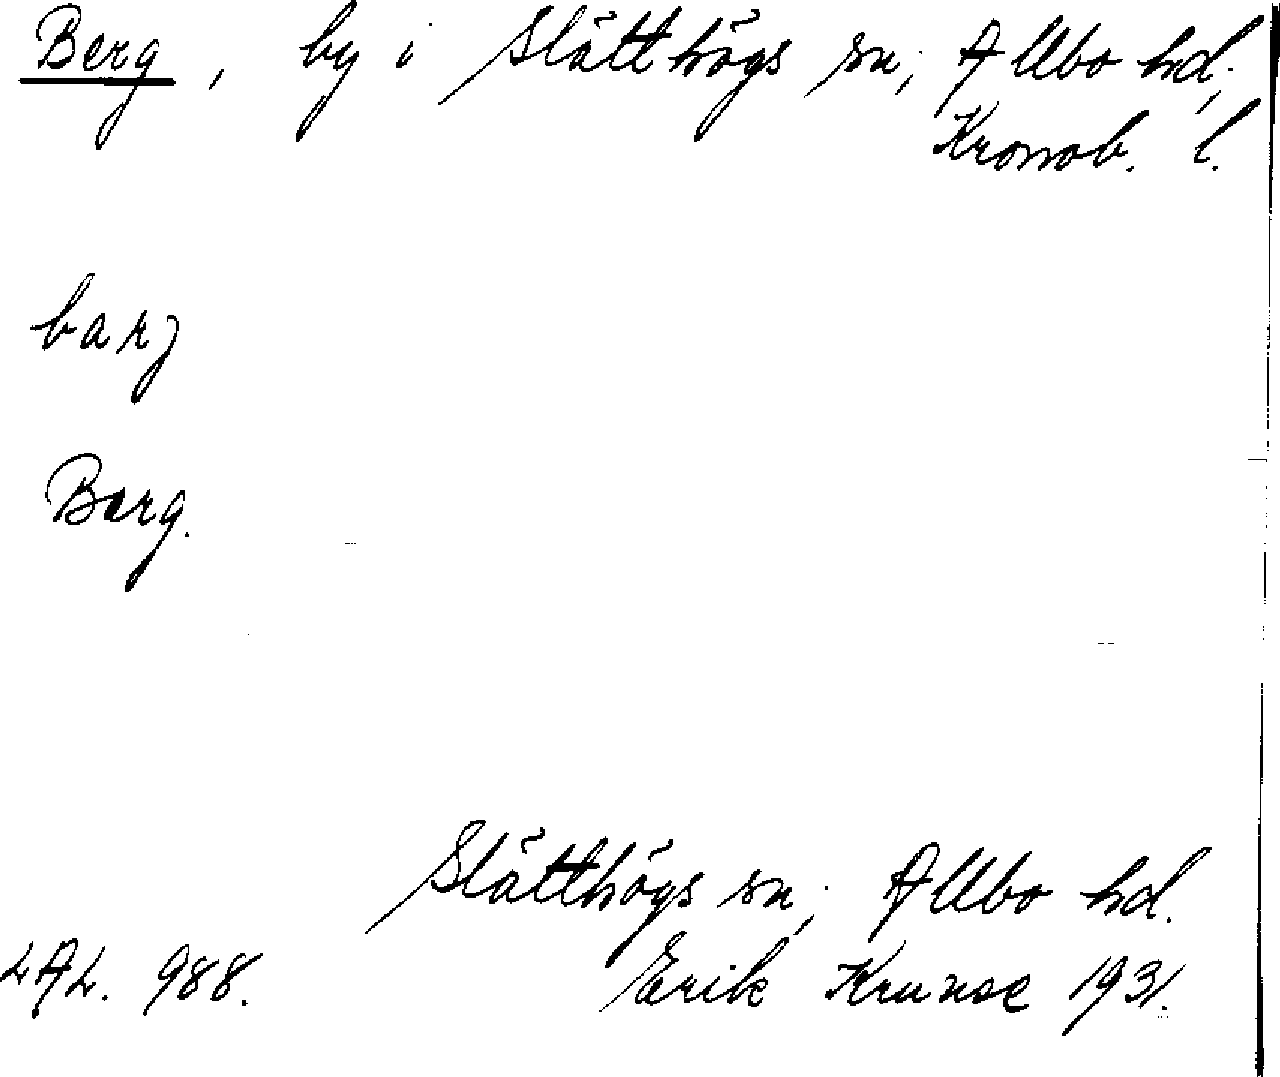 Berg, by i Slätthögs sn; Allbo hd;
Kronob. l.
barj
Barg.
Slätthögs sn; Allbo hd.
LAL. 988. Erik Kruuse 1931.